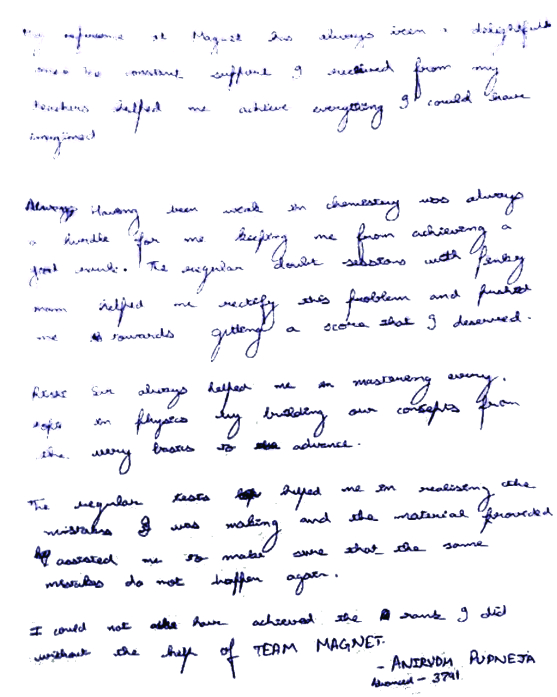 My experience at Magnet has always been a delightful
one. The constant support I received from my
teachers helped me achieve everything I could have
imagined
Having been weak in chemistry was always
a hurdle for me keeping me from achieving a
good result. The regular doubt sessions with
mam helped me rectify this problem and pushed
me towards getting a score that I deserved.
Sir always helped me in mastering every
topic in physics by building our concepts from
the very basics to advance.
The regular tests helped me in realising the
mistakes I was making and the material provided
assisted me to make sure that the same
mistakes do not happen again.
I could not have achieved the rank I did
without the help of TEAM MAGNET.
- ANIRUDH PUPNEJA
Advanced - 3791